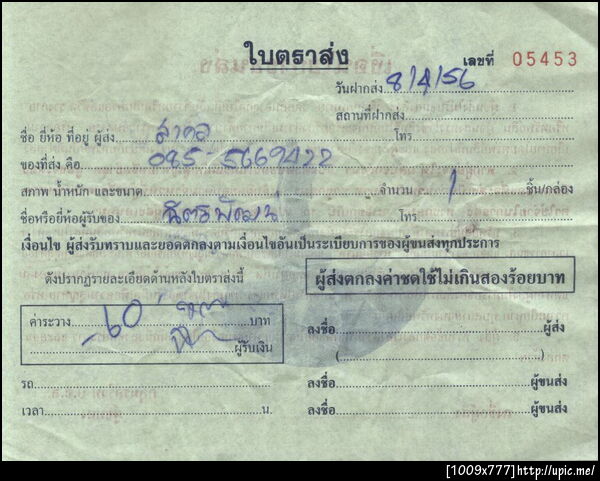 ใบตราส่ง
เลขที่ 05453
วันฝากส่ง 8/4/56
สถานที่ฝากส่ง
ชื่อ ยี่ห้อ ที่อยู่ ผู้ส่ง สาคร โทร
ของที่ส่ง คือ 085-5669422
สภาพ น้ำหนัก และขนาด จำนวน 1 ชิ้น/กล่อง
ชื่อหรือยี่ห้อผู้รับของ โทร
เงื่อนไข ผู้ส่งรับทราบและยอดตกลงตามเงื่อนไขอันเป็นระเบียบการของผู้ขนส่งทุกประการ
ดังปรากฏรายละเอียดด้านหลังใบตราส่งนี้
ผู้ส่งตกลงค่าชดใช้ไม่เกินสองร้อยบาท
ค่าระวาง 60 บาท
ผู้รับเงิน
ลงชื่อ ผู้ส่ง
( )
รถ ลงชื่อ ผู้ขนส่ง
เวลา น. ลงชื่อ ผู้ขนส่ง
[1009x777]http://upic.me/